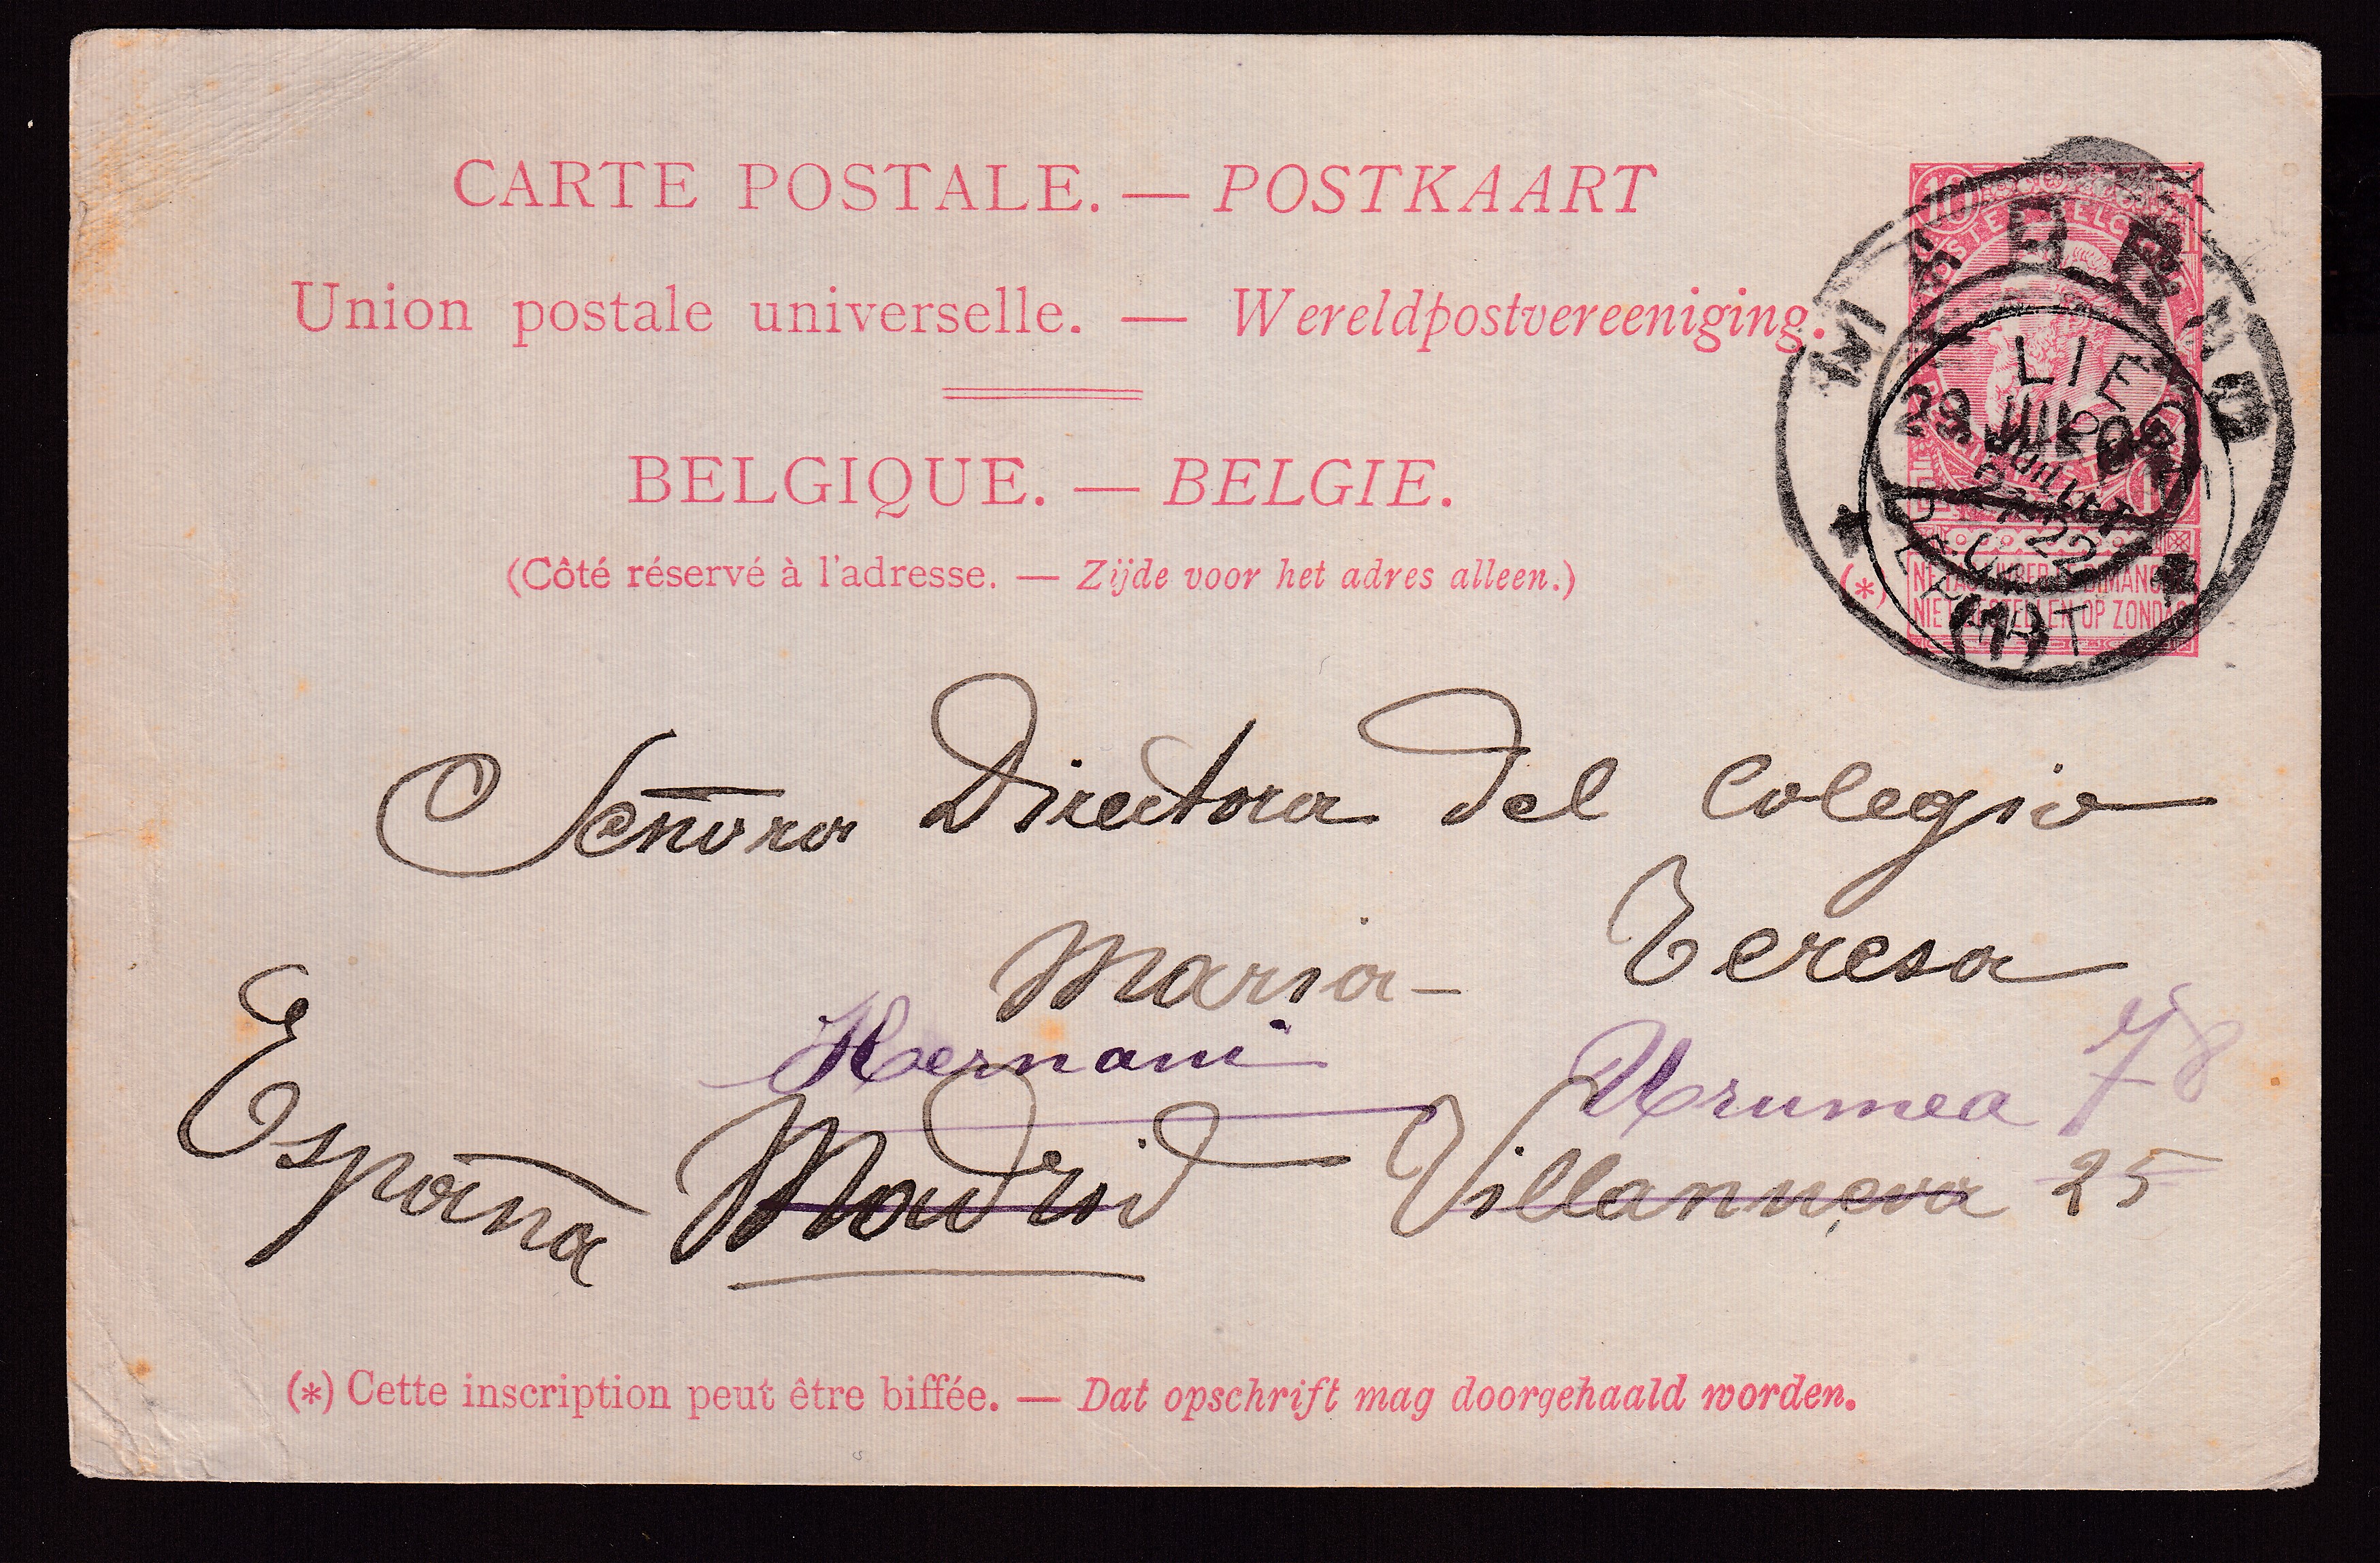 CARTE POSTALE. — POSTKAART
Union postale universelle. — Wereldpostvereeniging.
BELGIQUE. — BELGIE.
(Côté réservé à l'adresse. — Zijde voor het adres alleen.)
(*)
10
LIE
DEPART
(1)
Señora Directora del Colegio
Maria- Teresa
Hernani Urumea 78
España Madrid Villanueva 25
(*) Cette inscription peut être biffée. — Dat opschrift mag doorgehaald worden.